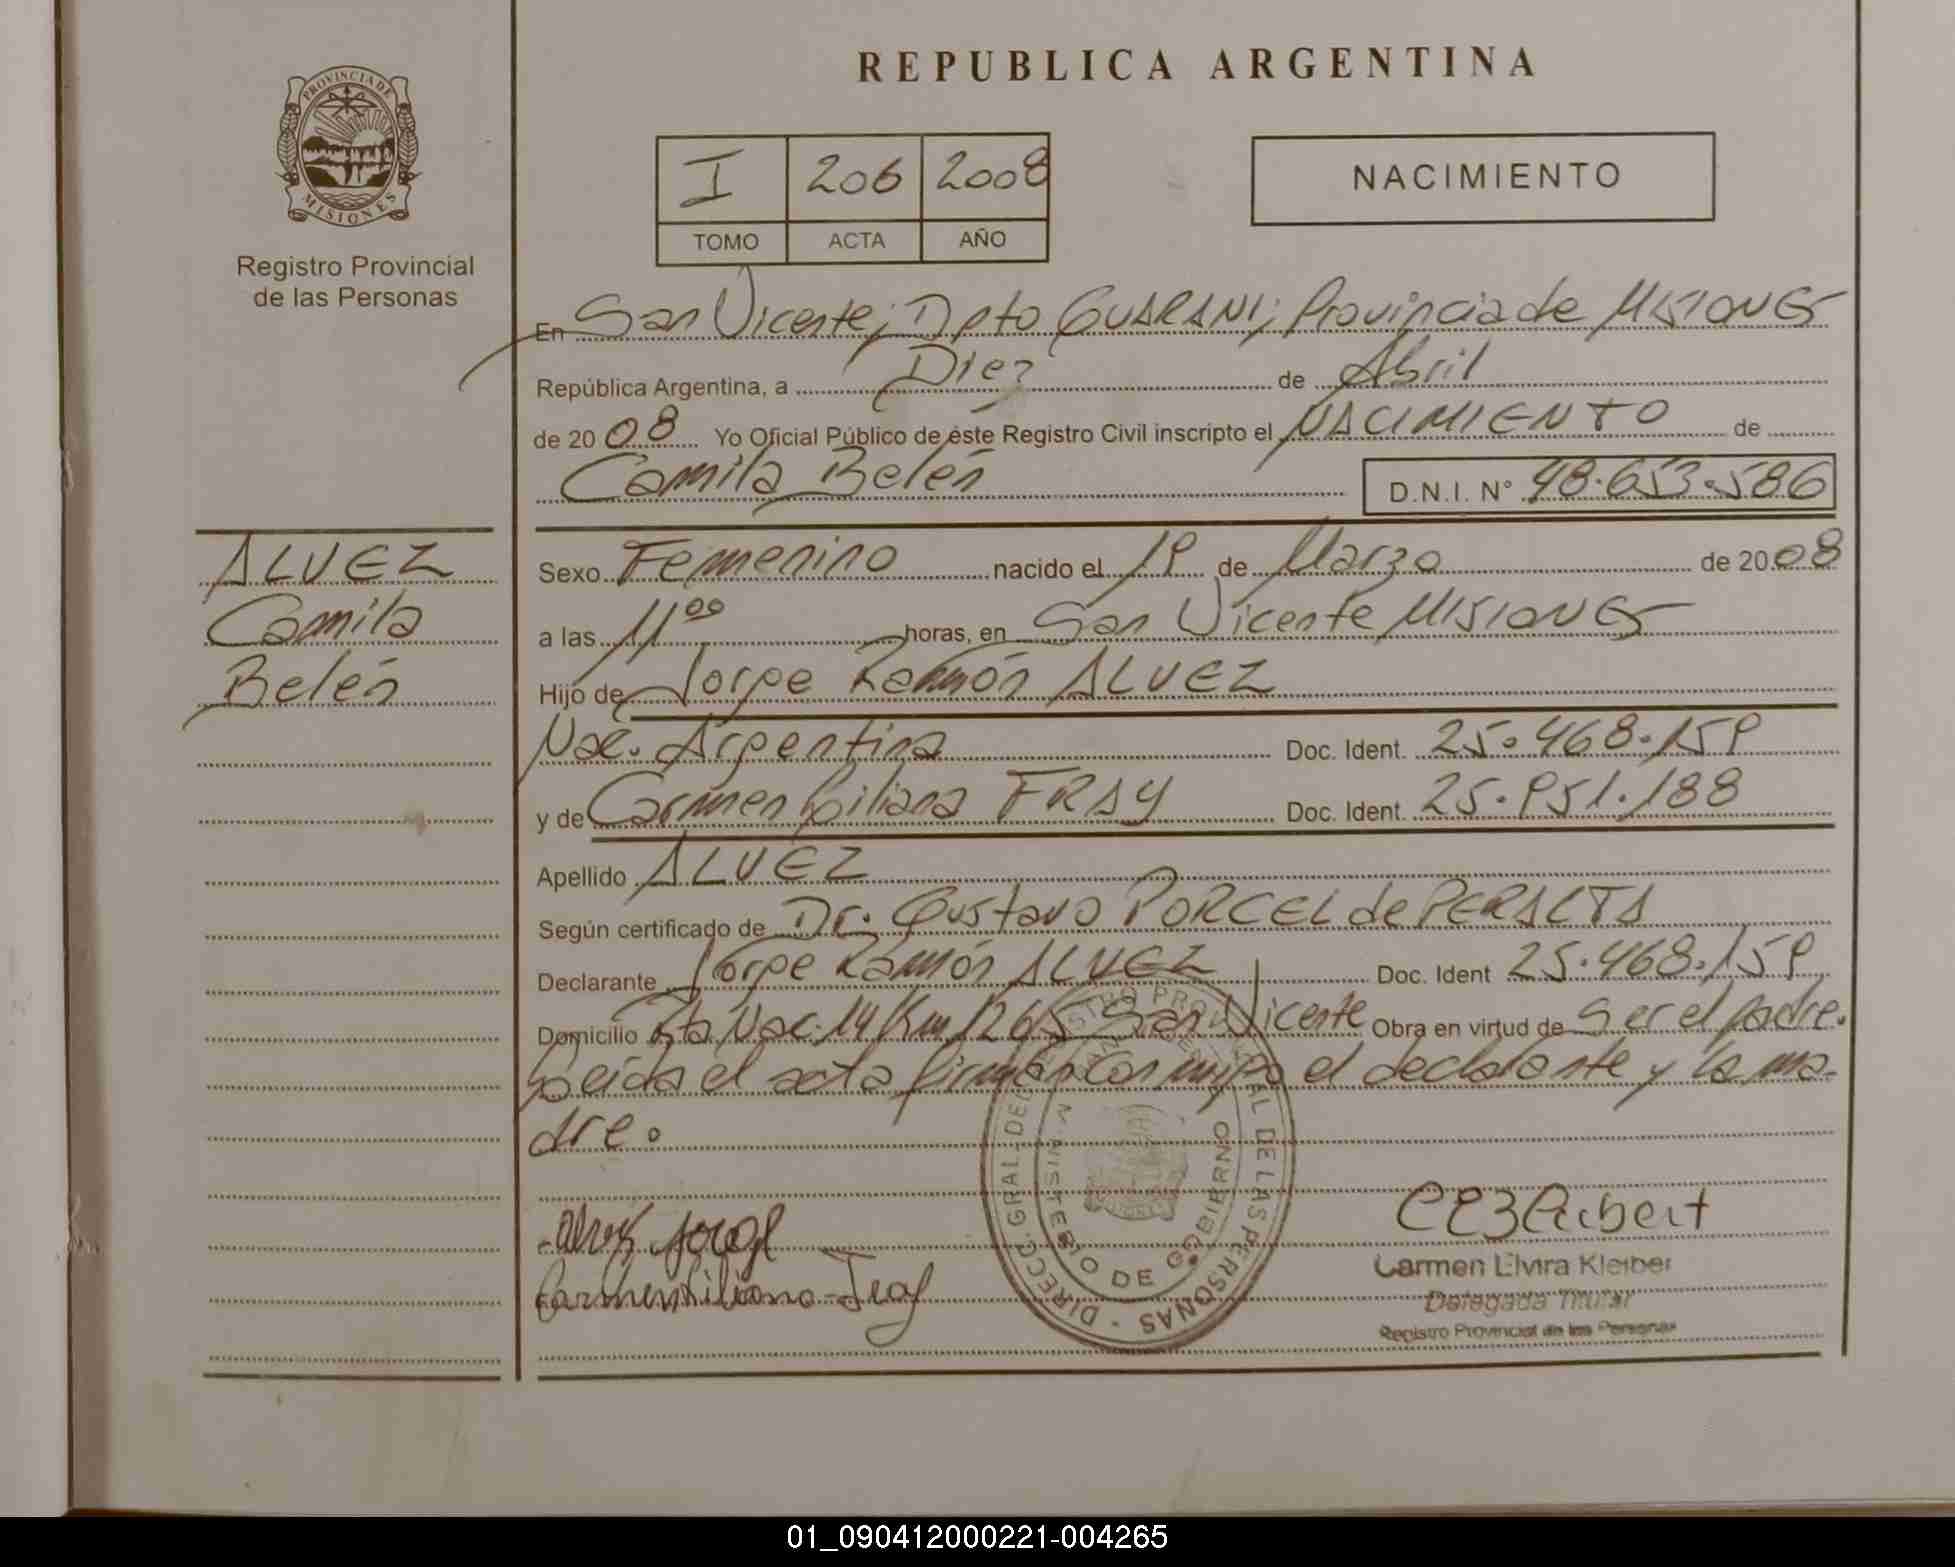 REPUBLICA ARGENTINA
PROVINCIA DE
MISIONES
Registro Provincial
de las Personas
I 206 2008
TOMO ACTA AÑO
NACIMIENTO
En San Vicente; Dpto GUARANI; Provincia de MISIONES
República Argentina, a Diez de Abril
de 2008 Yo Oficial Público de éste Registro Civil inscripto el NACIMIENTO de
Camila Belén D.N.I. N° 48.653.586
ALVEZ
Camila
Belén
Sexo Femenino nacido el 19 de Marzo de 2008
a las 11°° horas, en San Vicente MISIONES
Hijo de Jorge Ramón ALVEZ
Nac. Argentina Doc. Ident. 25.468.159
y de Carmen Liliana FRAY Doc. Ident. 25.951.188
Apellido ALVEZ
Según certificado de Dr. Gustavo PORCEL de PERALTA
Declarante Jorge Ramón ALVEZ Doc. Ident 25.468.159
Domicilio Rta Nac. 14 Km 1265 San Vicente Obra en virtud de Ser el padre.
Leída el acta firman con migo el declarante y la ma-
dre.
DIRECC. GRAL. DE PERSONAS
MINISTERIO DE GOBIERNO
Carmen Liliana
Carmen Elvira Kleiber
Delegada Titular
Registro Provincial de las Personas
01_090412000221-004265